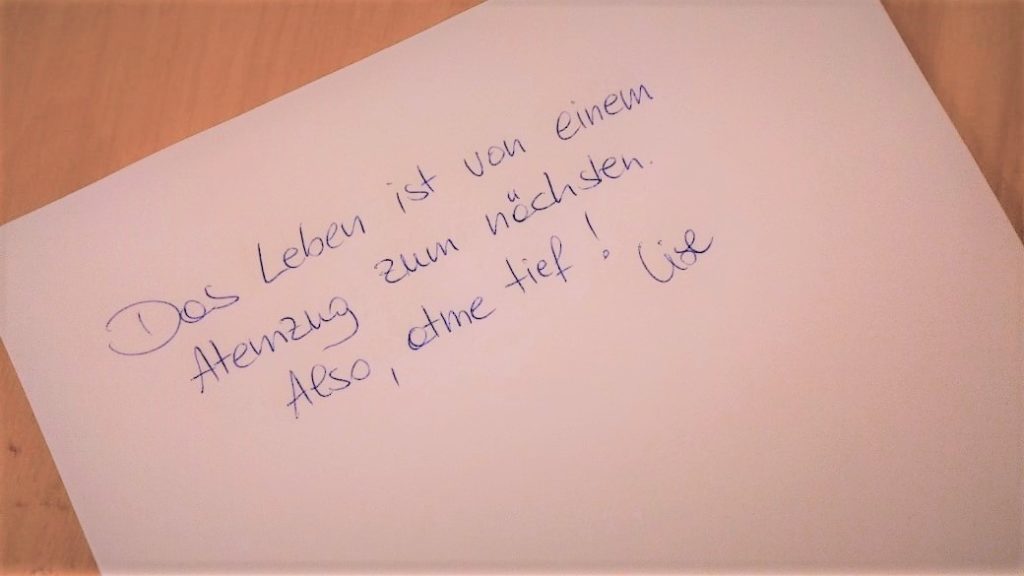 Das Leben ist von einem
Atemzug zum nächsten.
Also, atme tief! Lise